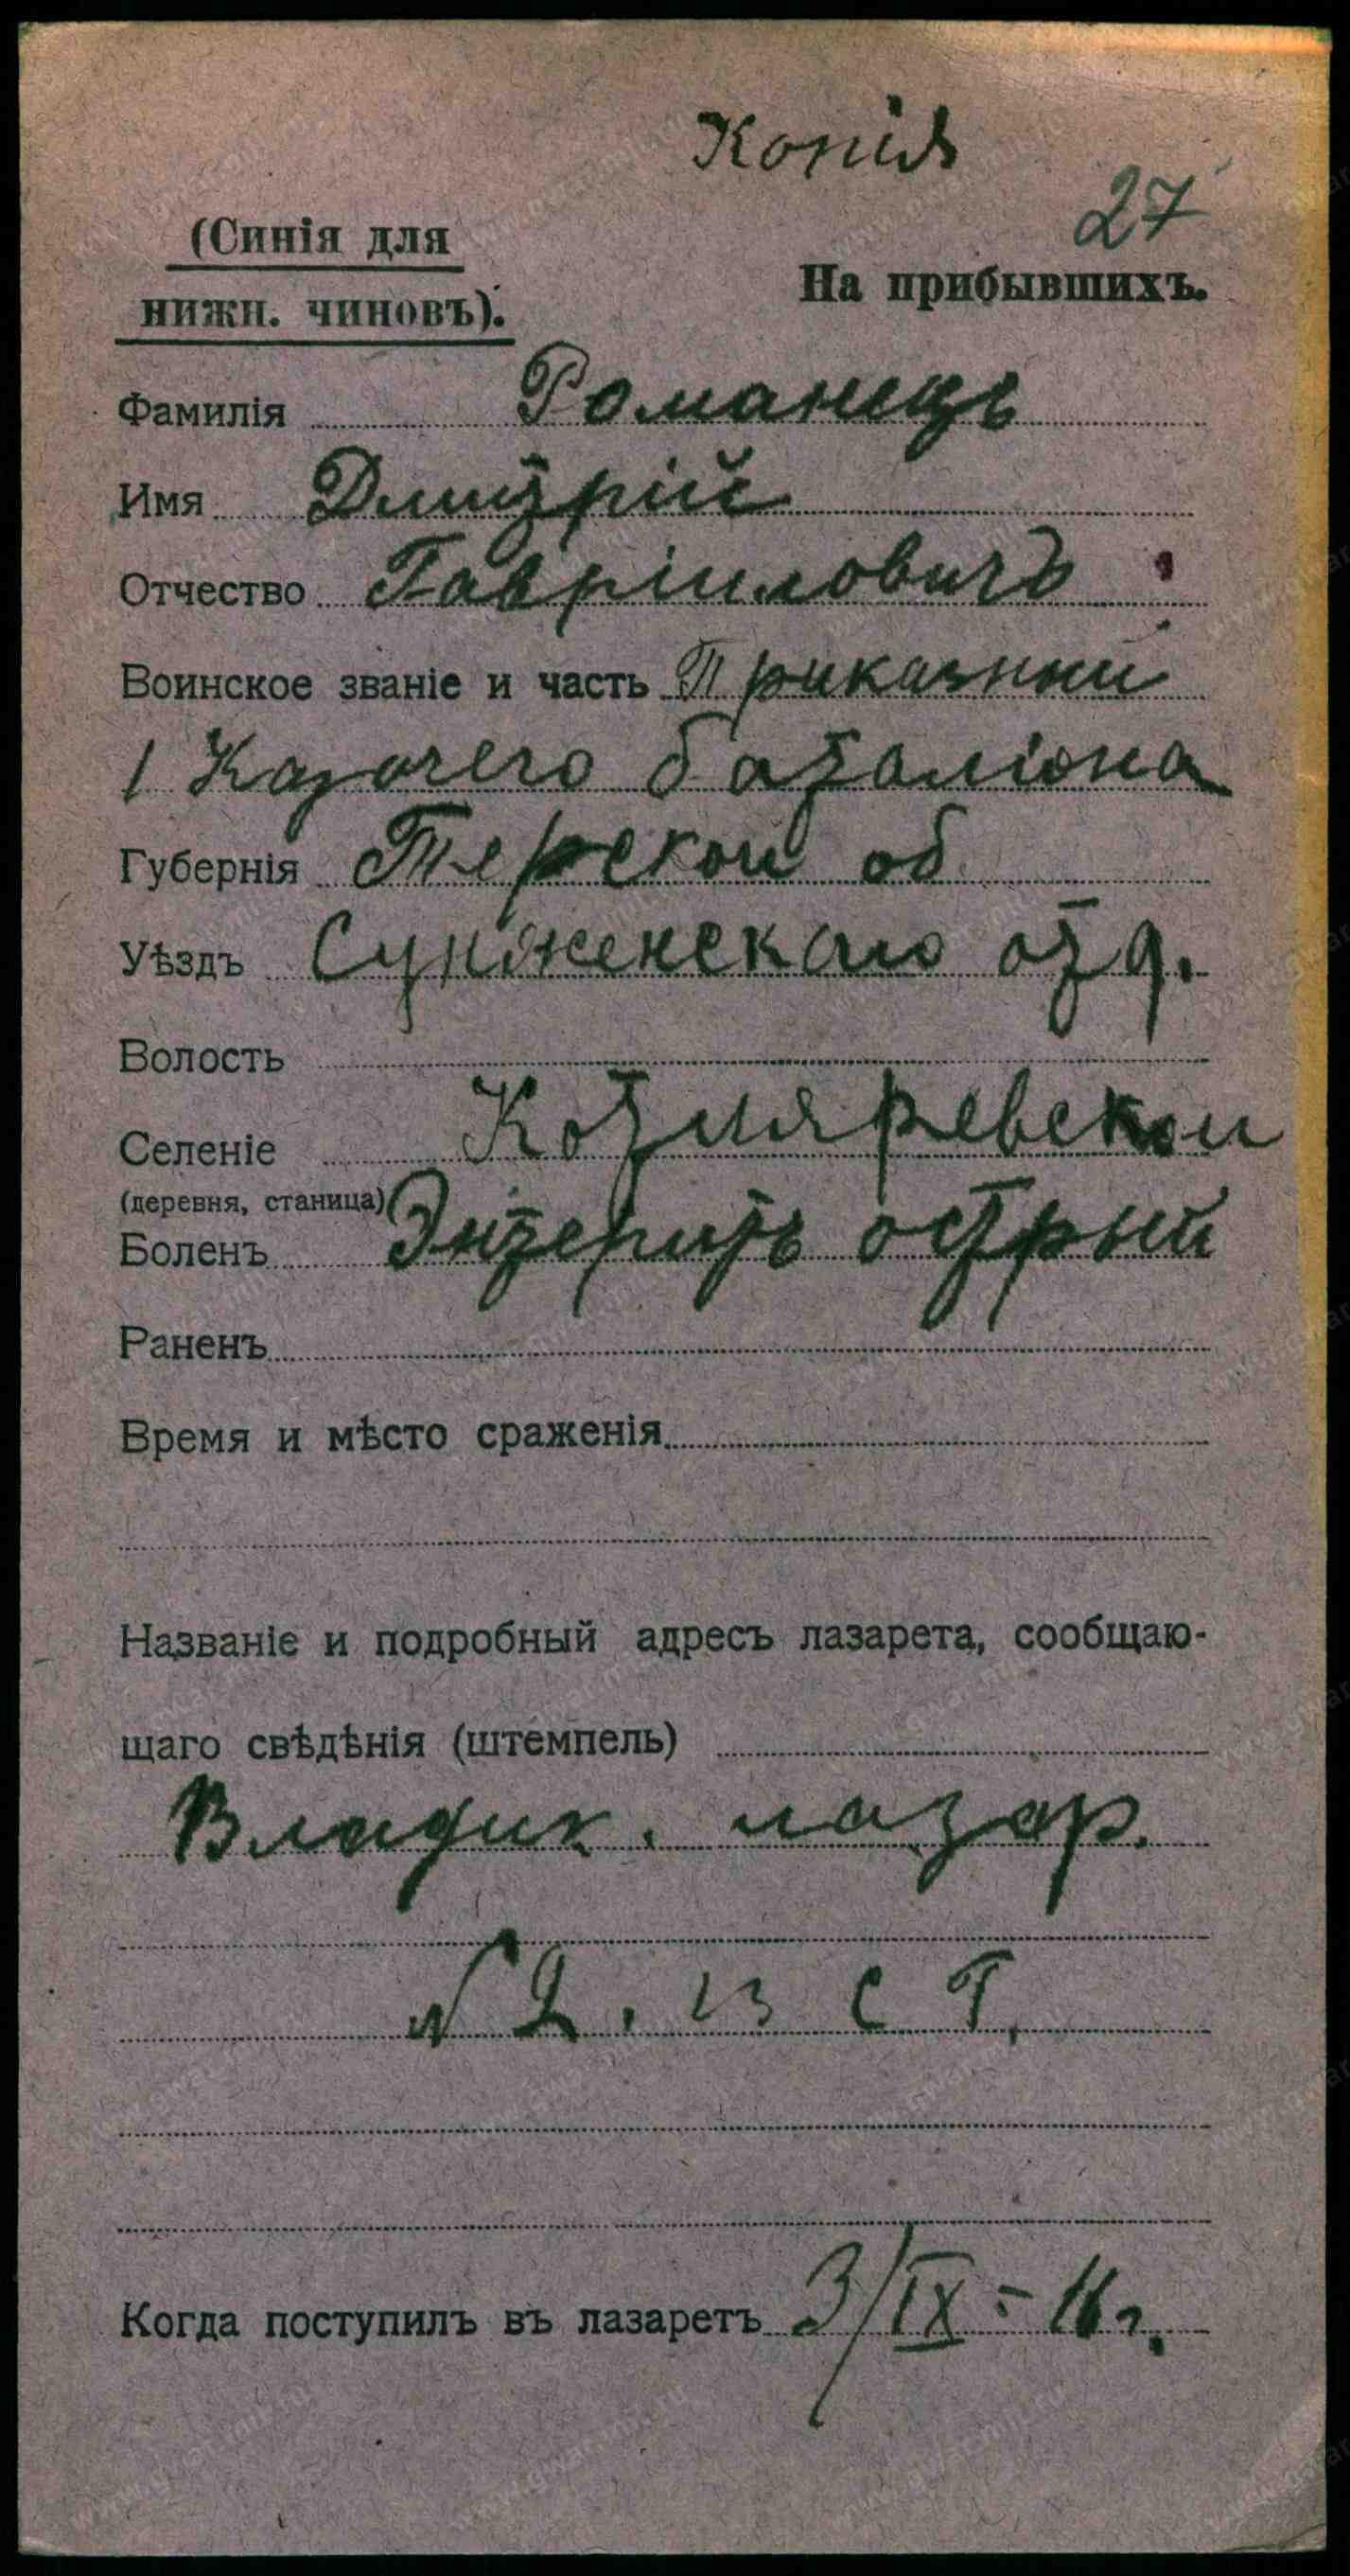 Копія
27
(Синія для
нижн. чиновъ).
На прибывшихъ.
Фамилія Романецъ
Имя Дмитрій
Отчество Гавріиловичъ
Воинское званіе и часть Приказный
1 Казачего баталіона
Губернія Терской об
Уѣздъ Сунженскаго отд.
Волость
Селеніе Котляревской
(деревня, станица)
Боленъ Энтеритъ острый
Раненъ
Время и мѣсто сраженія
Названіе и подробный адресъ лазарета, сообщаю-
щаго свѣдѣнія (штемпель)
Владик. лазар.
N 2. В С Г.
Когда поступилъ въ лазаретъ 3/IX - 16 г.